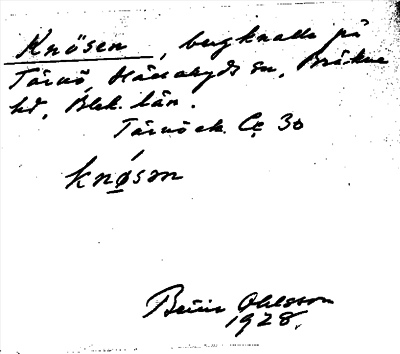 Knösen, bergknalle på
Tärnö, Hällaryds sn, Bräkne
hd, Blek. län.
Tärnö ek. Ce 30
knø̱sən
Ohlsson
1928.